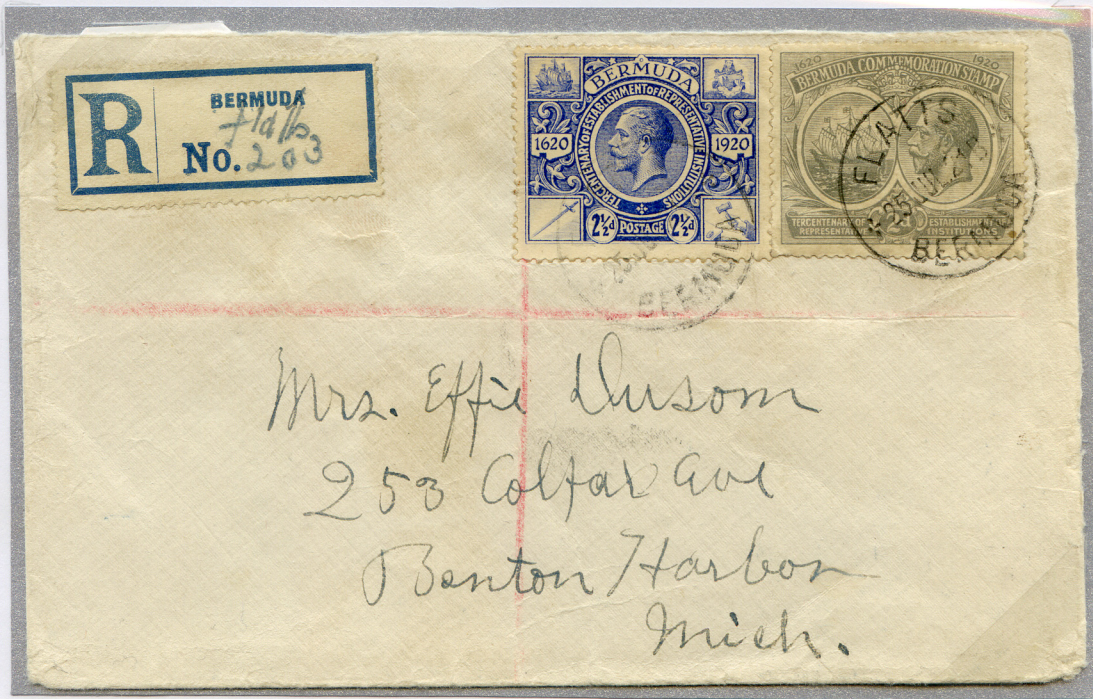 R BERMUDA
Flatts
No. 203
BERMUDA
TERCENTENARY OF ESTABLISHMENT OF REPRESENTATIVE INSTITUTIONS
1620 1920
2½d POSTAGE 2½d
BERMUDA
1620 1920
BERMUDA COMMEMORATION STAMP
TERCENTENARY OF ESTABLISHMENT
REPRESENTATIVE INSTITUTIONS
2d
FLATTS
25 JUL 21
BERMUDA
Mrs. Effie Dusom
253 Colfax Ave
Benton Harbor
Mich.